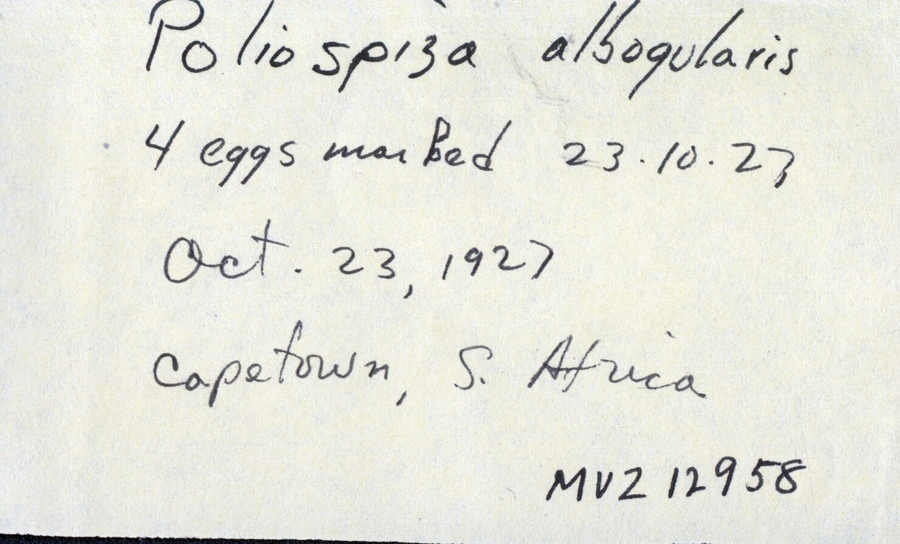 Poliospiza albogularis
4 eggs marked 23.10.27
Oct. 23, 1927
Capetown, S. Africa
MVZ 12958